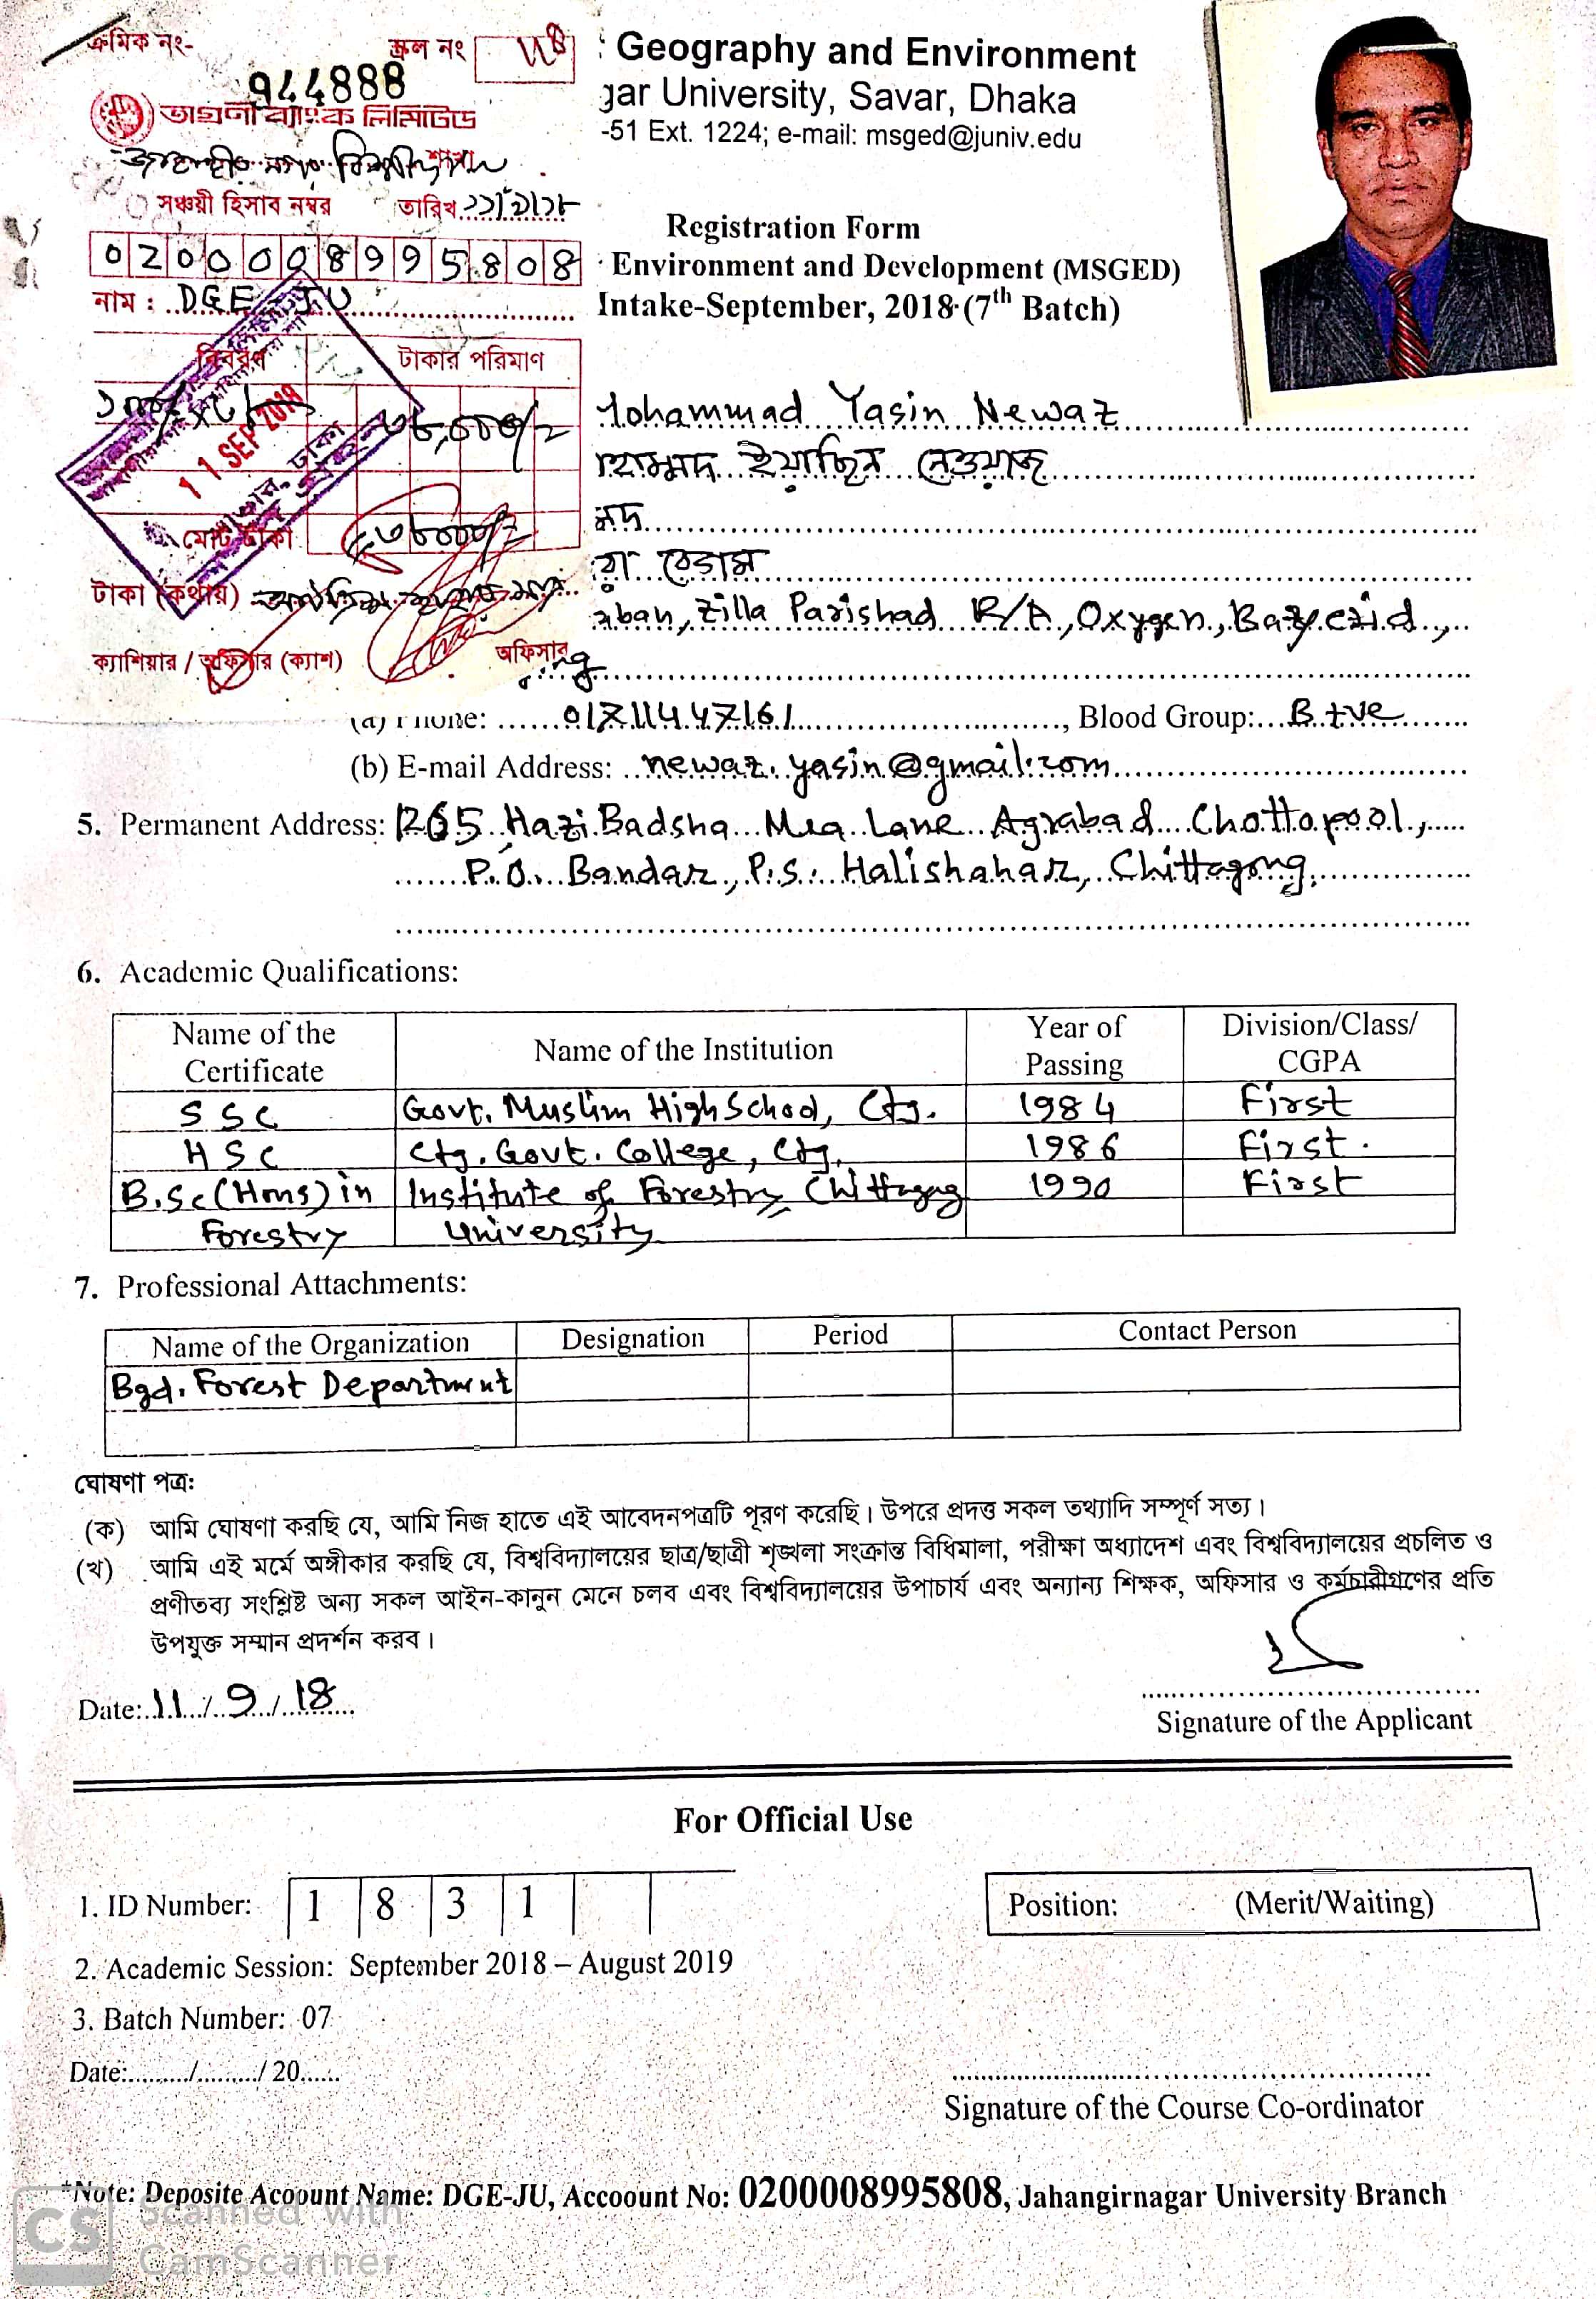 ক্রমিক নং-
স্ক্রল নং
944888
অগ্রণী ব্যাংক লিমিটেড
শাখা
সঞ্চয়ী হিসাব নম্বর তারিখ ১১/৯/১৮
0200008995808
নাম : DGE-JU
বিবরণ টাকার পরিমাণ
11 SEP 2018
মোট টাকা
টাকা (কথায়)
ক্যাশিয়ার / অফিসার (ক্যাশ) অফিসার
Geography and Environment
gar University, Savar, Dhaka
-51 Ext. 1224; e-mail: msged@juniv.edu
Registration Form
Environment and Development (MSGED)
Intake-September, 2018 (7th Batch)
Mohammad Yasin Newaz
ইয়াছিন নেওয়াজ
মদ
রা বেগম
aban, Zilla Parishad R/A, Oxygen, Bayezid,
g
(a) Phone: 01711447161, Blood Group: B +ve
(b) E-mail Address: newaz.yasin@gmail.com
5. Permanent Address: 1265 Hazi Badsha Mia Lane Agrabad Chottopool,
P.O. Bandar, P.S. Halishahar, Chittagong.
6. Academic Qualifications:
Name of the Certificate Name of the Institution Year of Passing Division/Class/ CGPA
SSC Govt. Muslim High School, Ctg. 1984 First
HSC Ctg. Govt. College, Ctg. 1986 First.
B.Sc (Hons) in Institute of Forestry Chittagong 1990 First
Forestry University
7. Professional Attachments:
Name of the Organization Designation Period Contact Person
Bgd. Forest Department
ঘোষণা পত্র:
(ক) আমি ঘোষণা করছি যে, আমি নিজ হাতে এই আবেদনপত্রটি পূরণ করেছি। উপরে প্রদত্ত সকল তথ্যাদি সম্পূর্ণ সত্য।
(খ) আমি এই মর্মে অঙ্গীকার করছি যে, বিশ্ববিদ্যালয়ের ছাত্র/ছাত্রী শৃঙ্খলা সংক্রান্ত বিধিমালা, পরীক্ষা অধ্যাদেশ এবং বিশ্ববিদ্যালয়ের প্রচলিত ও
প্রণীতব্য সংশ্লিষ্ট অন্য সকল আইন-কানুন মেনে চলব এবং বিশ্ববিদ্যালয়ের উপাচার্য এবং অন্যান্য শিক্ষক, অফিসার ও কর্মচারীগণের প্রতি
উপযুক্ত সম্মান প্রদর্শন করব।
Date: 11/9/18
Signature of the Applicant
For Official Use
1. ID Number: 1 8 3 1
Position: (Merit/Waiting)
2. Academic Session: September 2018 – August 2019
3. Batch Number: 07
Date:........./........./ 20......
Signature of the Course Co-ordinator
*Note: Deposite Acoount Name: DGE-JU, Accoount No: 0200008995808, Jahangirnagar University Branch
CS Scanned with
CamScanner